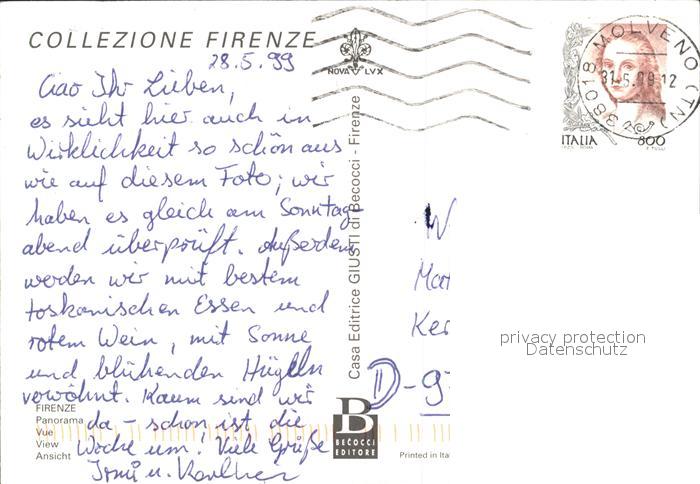 COLLEZIONE FIRENZE
28.5.99
NOVA LVX
Ciao Ihr Lieben,
es sieht hier auch in
Wirklichkeit so schön aus
wie auf diesem Foto; wir
haben es gleich am Sonntag-
abend überprüft. Außerdem
werden wir mit bestem
toskanischen Essen und
rotem Wein, mit Sonne
und blühenden Hügeln
verwöhnt. Kaum sind wir
da - schon ist die
Woche um! Viele Grüße
Irmi u. Karlhei
FIRENZE
Panorama
Vue
View
Ansicht
Casa Editrice GIUSTI di Becocci - Firenze
B
BECOCCI
EDITORE
Printed in Ital
38018 MOLVENO (TN)
31.5.99.12
ITALIA 800
W
Mar
Ker
D-9
privacy protection
Datenschutz